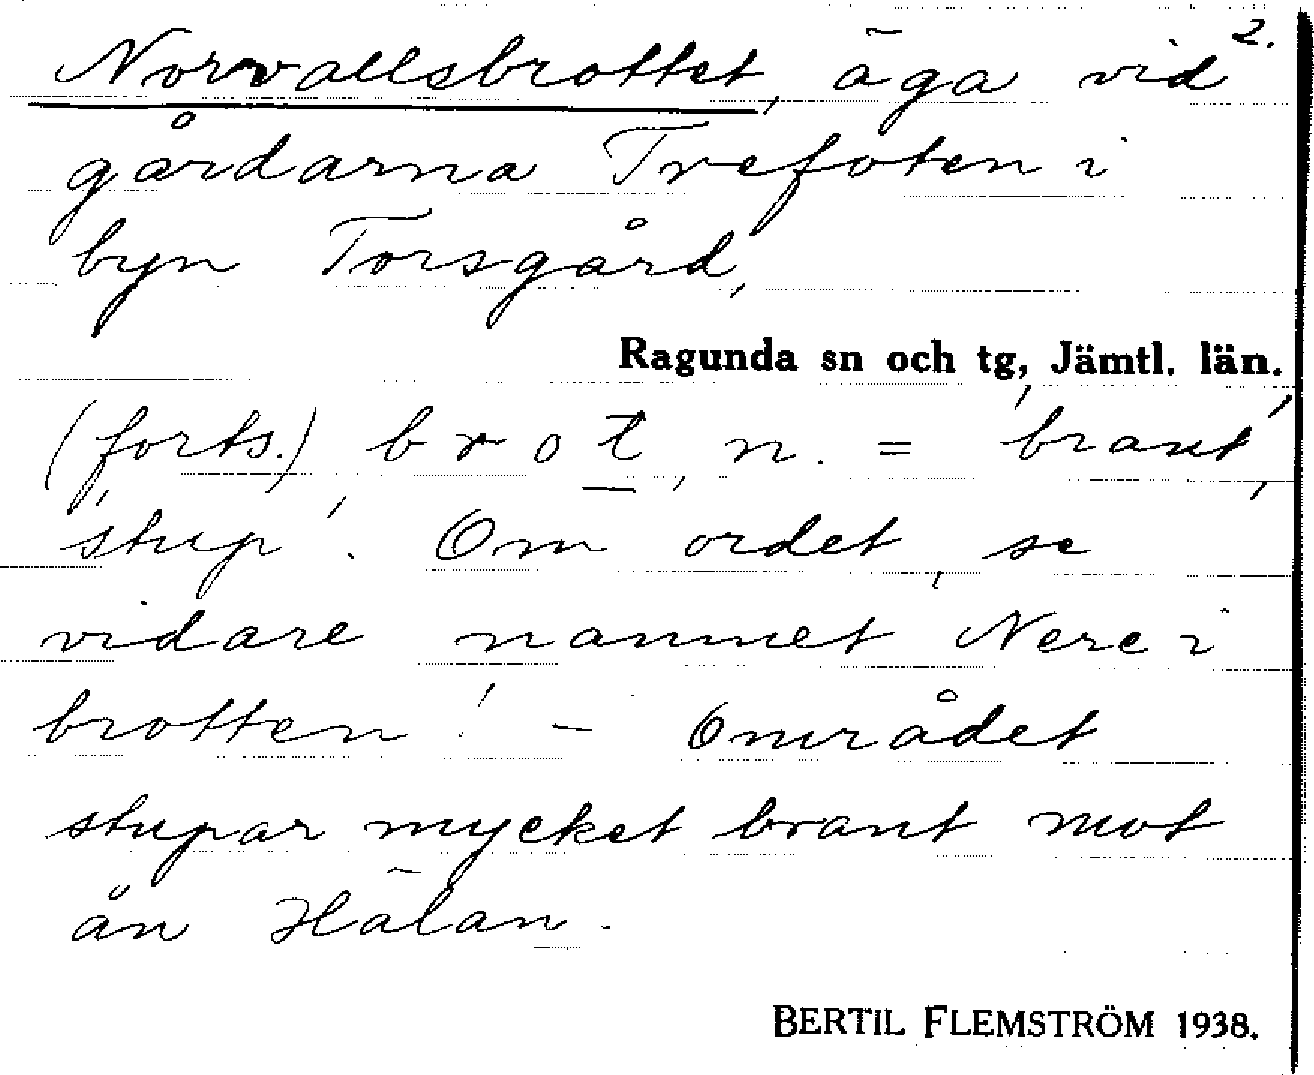 2.
Norvallsbrottet, äga vid
gårdarna Trefoten i
byn Torsgård,
Ragunda sn och tg, Jämtl. län.
(forts.) brot, n. = 'brant',
'stup'. Om ordet, se
vidare namnet Nere i
brotten! – Området
stupar mycket brant mot
ån Hälan.
BERTIL FLEMSTRÖM 1938.